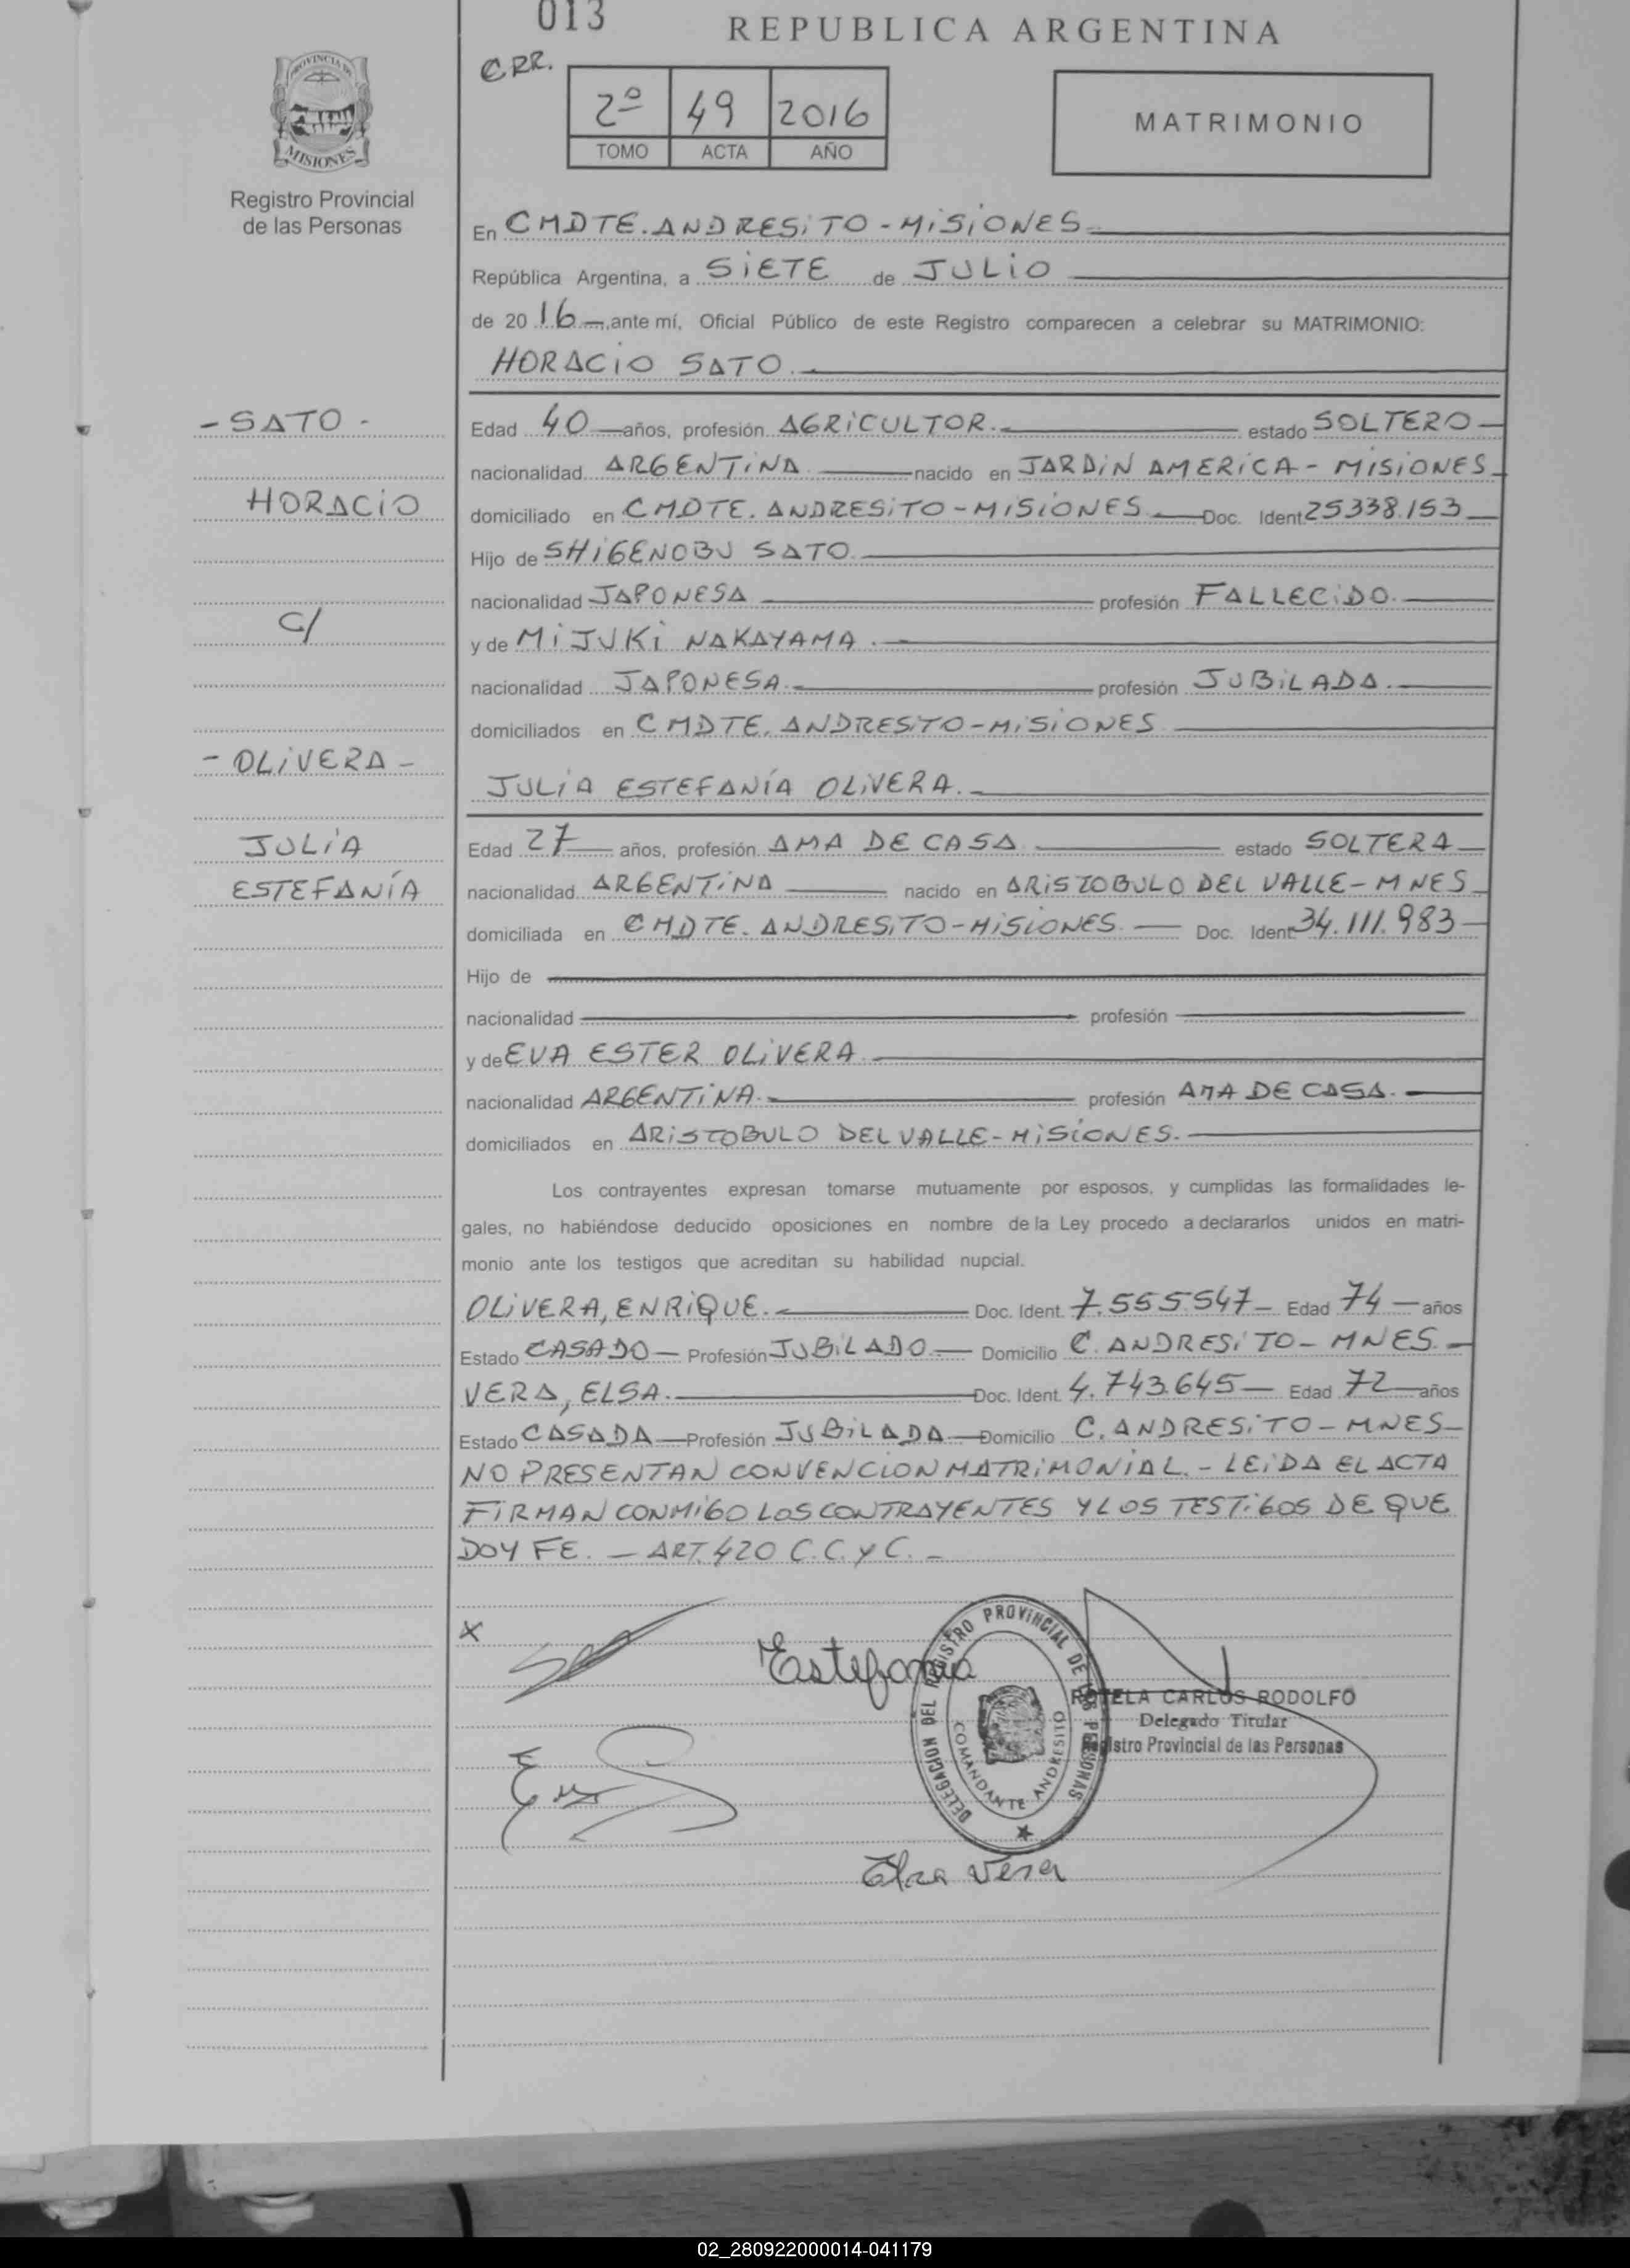 013
REPUBLICA ARGENTINA
CRR.
2º 49 2016
TOMO ACTA AÑO
MATRIMONIO
PROVINCIA DE
MISIONES
Registro Provincial
de las Personas
En CMDTE. ANDRESiTO - MiSiONES
República Argentina, a SiETE de JULiO
de 20 16 ante mí, Oficial Público de este Registro comparecen a celebrar su MATRIMONIO:
HORACiO SATO.
- SATO -
Edad 40 años, profesión AGRiCULTOR. estado SOLTERO
nacionalidad ARGENTiNA nacido en JARDiN AMERiCA - MiSiONES
HORACiO
domiciliado en CMDTE. ANDRESiTO - MISiONES Doc. Ident 25338.153
Hijo de SHiGENOBU SATO.
nacionalidad JAPONESA profesión FALLECiDO.
C/
y de MiJUKi NAKAYAMA.
nacionalidad JAPONESA. profesión JUBiLADA.
domiciliados en CMDTE. ANDRESiTO - MiSiONES
- OLiVERA -
JULiA ESTEFANÍA OLiVERA.
JULiA
Edad 27 años, profesión AMA DE CASA estado SOLTERA
ESTEFANÍA
nacionalidad ARGENTiNA nacido en ARiSTOBULO DEL VALLE - MNES
domiciliada en CMDTE. ANDRESiTO - MiSiONES. Doc. Ident 34.111.983
Hijo de
nacionalidad profesión
y de EVA ESTER OLiVERA.
nacionalidad ARGENTiNA. profesión AMA DE CASA.
domiciliados en ARiSTOBULO DEL VALLE - MiSiONES.
Los contrayentes expresan tomarse mutuamente por esposos, y cumplidas las formalidades le-
gales, no habiéndose deducido oposiciones en nombre de la Ley procedo a declararlos unidos en matri-
monio ante los testigos que acreditan su habilidad nupcial.
OLiVERA, ENRiQUE. Doc. Ident. 7.555.547 Edad 74 años
Estado CASADO Profesión JUBiLADO Domicilio C. ANDRESiTO - MNES.
VERA, ELSA. Doc. Ident. 4.743.645 Edad 72 años
Estado CASADA Profesión JUBiLADA Domicilio C. ANDRESiTO - MNES
NO PRESENTAN CONVENCiON MATRiMONiAL. - LEiDA EL ACTA
FiRMAN CONMiGO LOS CONTRAYENTES Y LOS TESTiGOS DE QUE
DOY FE. - ART. 420 C.C. y C. -
X
Estefania
DELEGACION DEL REGISTRO PROVINCIAL DE LAS PERSONAS
COMANDANTE ANDRESITO
ROTELA CARLOS RODOLFO
Delegado Titular
Registro Provincial de las Personas
Elsa Vera
02_280922000014-041179